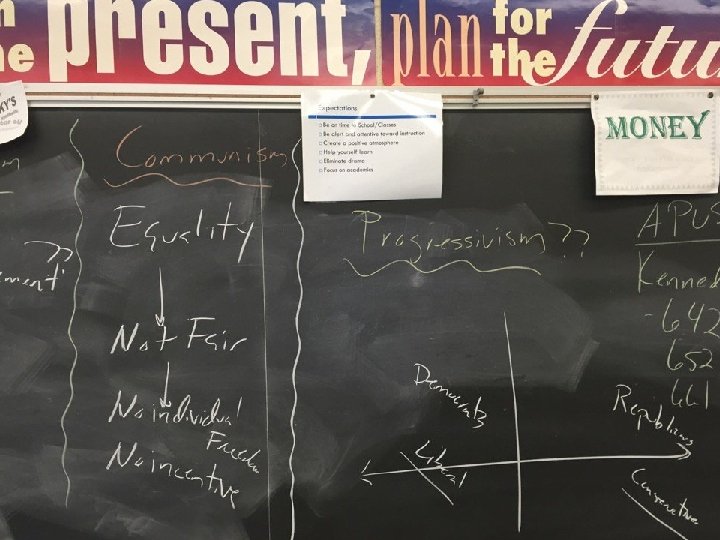 present,
plan for
the future
KY'S
Expectations
Be on time to School/Classes
Be alert and attentive toward instruction
Create a positive atmosphere
Help yourself learn
Eliminate drama
Focus on academics
MONEY
ement"
??
Communism
Equality
Not Fair
No individual
Freedom
No incentive
Progressivism??
Democrats
Liberal
Republicans
Conservative
APUS
Kenned
-642
652
661